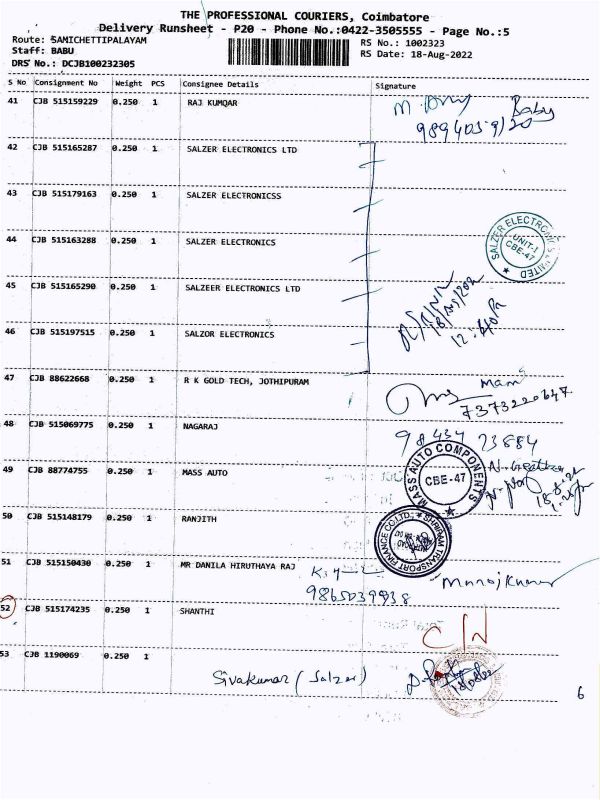 THE PROFESSIONAL COURIERS, Coimbatore
Delivery Runsheet - P20 - Phone No.:0422-3505555 - Page No.:5
Route: SAMICHETTIPALAYAM
Staff: BABU
DRS No.: DCJB100232305
RS No.: 1002323
RS Date: 18-Aug-2022
S No Consignment No Weight PCS Consignee Details Signature
41 CJB 515159229 0.250 1 RAJ KUMQAR
Baby
42 CJB 515165287 0.250 1 SALZER ELECTRONICS LTD
43 CJB 515179163 0.250 1 SALZER ELECTRONICSS
44 CJB 515163288 0.250 1 SALZER ELECTRONICS
UNIT-I
CBE-47
45 CJB 515165290 0.250 1 SALZEER ELECTRONICS LTD
46 CJB 515197515 0.250 1 SALZOR ELECTRONICS
47 CJB 88622668 0.250 1 R K GOLD TECH, JOTHIPURAM
mam
7373220647
48 CJB 515069775 0.250 1 NAGARAJ
98434 23884
49 CJB 88774755 0.250 1 MASS AUTO
MASS AUTO COMPONENTS
CBE-47
50 CJB 515148179 0.250 1 RANJITH
SHRIRAM TRANSPORT FINANCE CO.LTD.,
51 CJB 515150430 0.250 1 MR DANILA HIRUTHAYA RAJ
Manojkumar
52 CJB 515174235 0.250 1 SHANTHI
C/N
53 CJB 1190069 0.250 1
Sivakumar (Salzer)
6